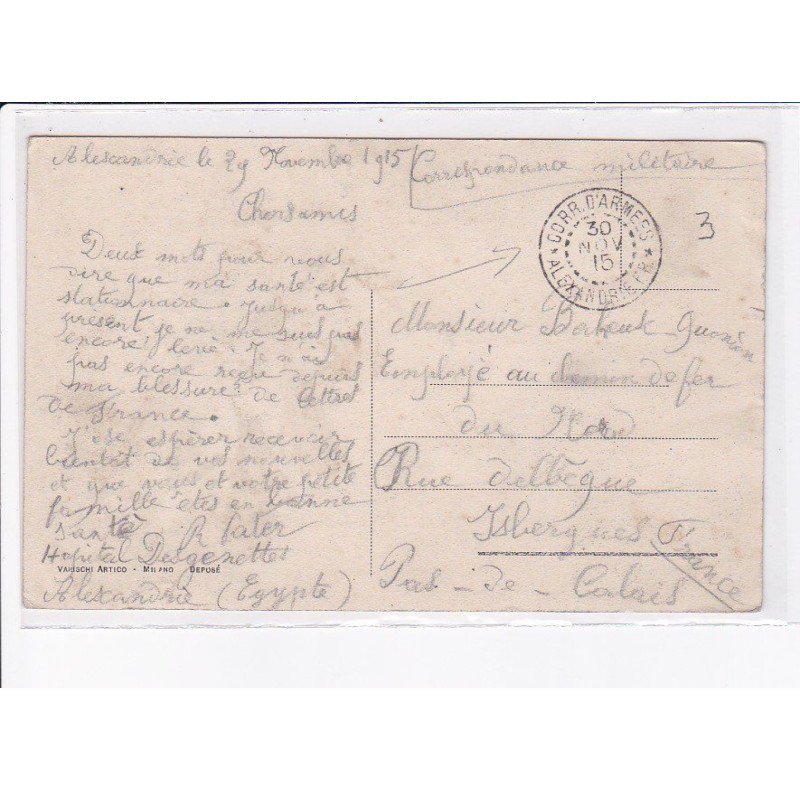 Alexandrie le 29 Novembre 1915
Correspondance militaire
Chers amis
Deux mots pour vous
dire que ma santé est
stationnaire. Jusqu'à
présent je ne me suis pas
encore levé. Je n'ais
pas encore reçu depuis
ma blessure de lettres
de France.
J'ose espérer recevoir
bientôt de vos nouvelles
et que vous et votre petite
famille êtes en bonne
santé
Hopital Degenettes
VARISCHI ARTICO - MILANO DEPOSÉ
Alexandrie (Egypte)
CORR. D'ARMEES
30
NOV
15
ALEXANDRIE
3
Monsieur
Employé au chemin defer
du Nord
Rue delbèque
Isbergues
Pas-de-Calais
France